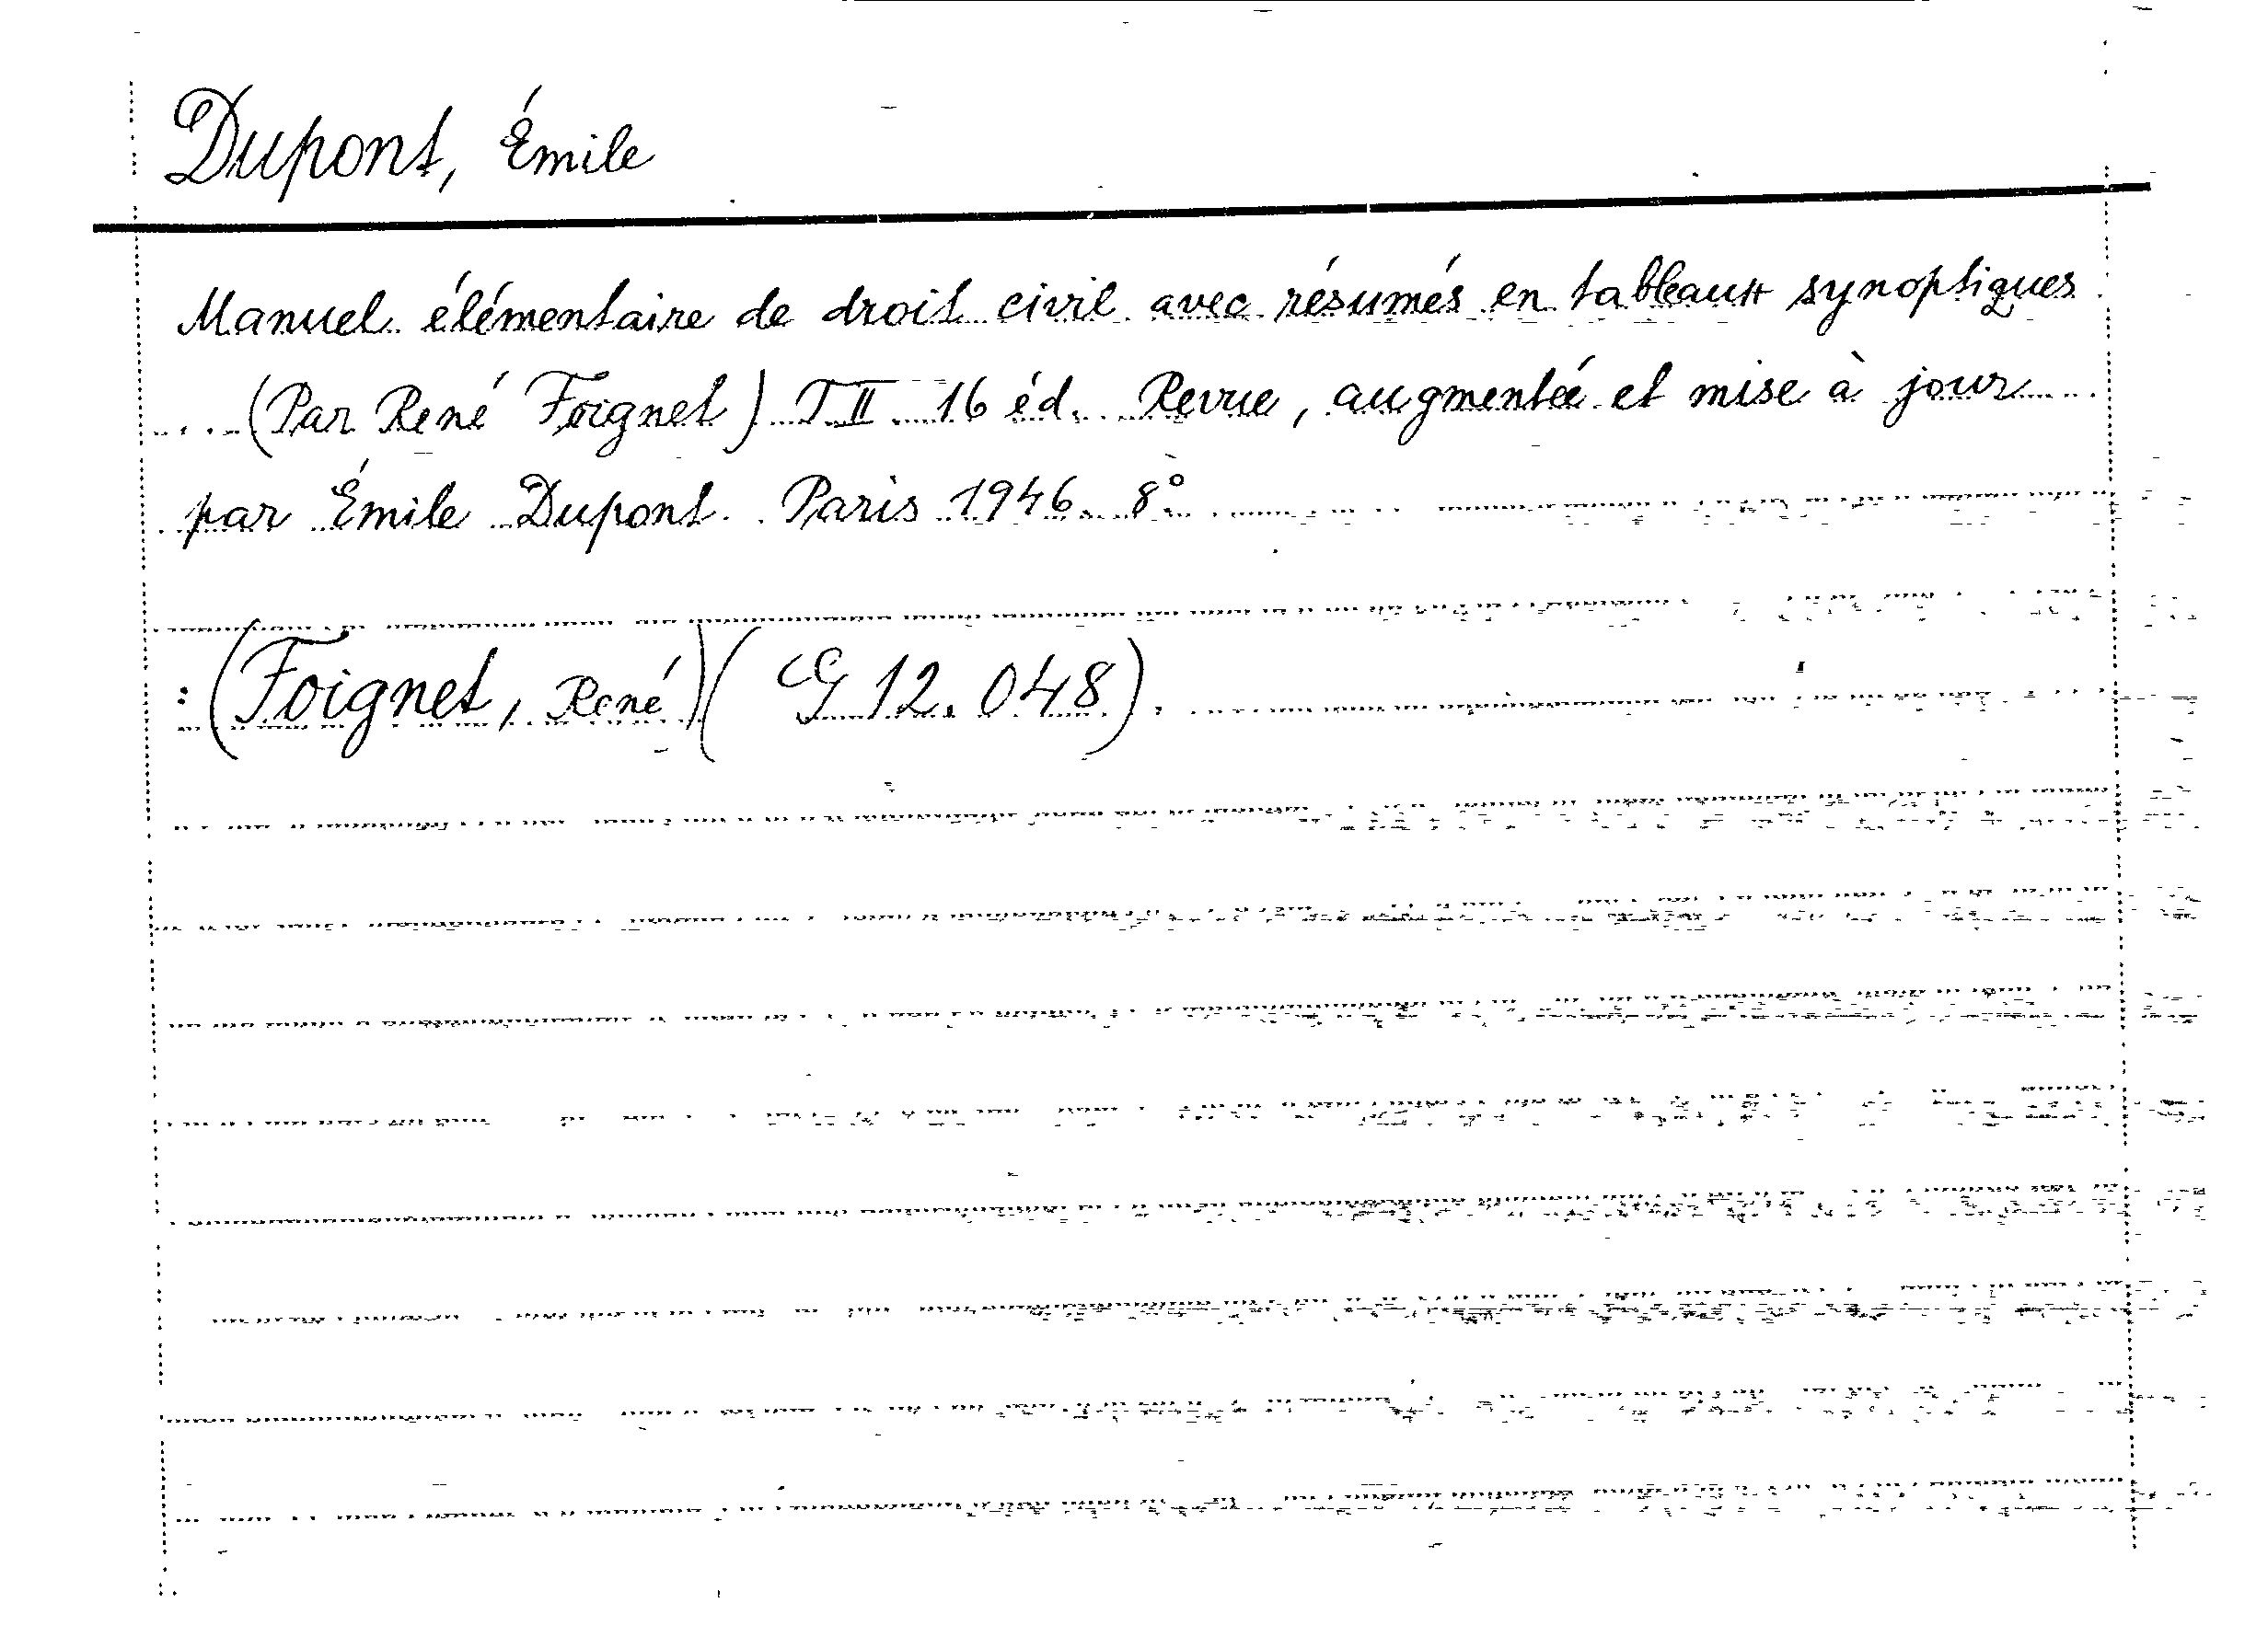 Dupont, Émile
Manuel élémentaire de droit civil avec résumés en tableaux synoptiques
(Par René Foignet) T II 16 éd. Revue, augmentée et mise à jour
par Émile Dupont. Paris 1946. 8°
:(Foignet, René)(G 12.048).